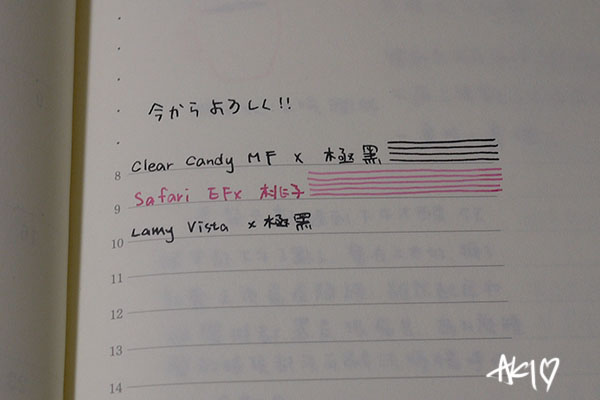 今からよろしく!!
Clear Candy MF x 極黒
8
Safari EF x 桃子
9
Lamy Vista x 極黒
10
11
12
13
14
AKI♡